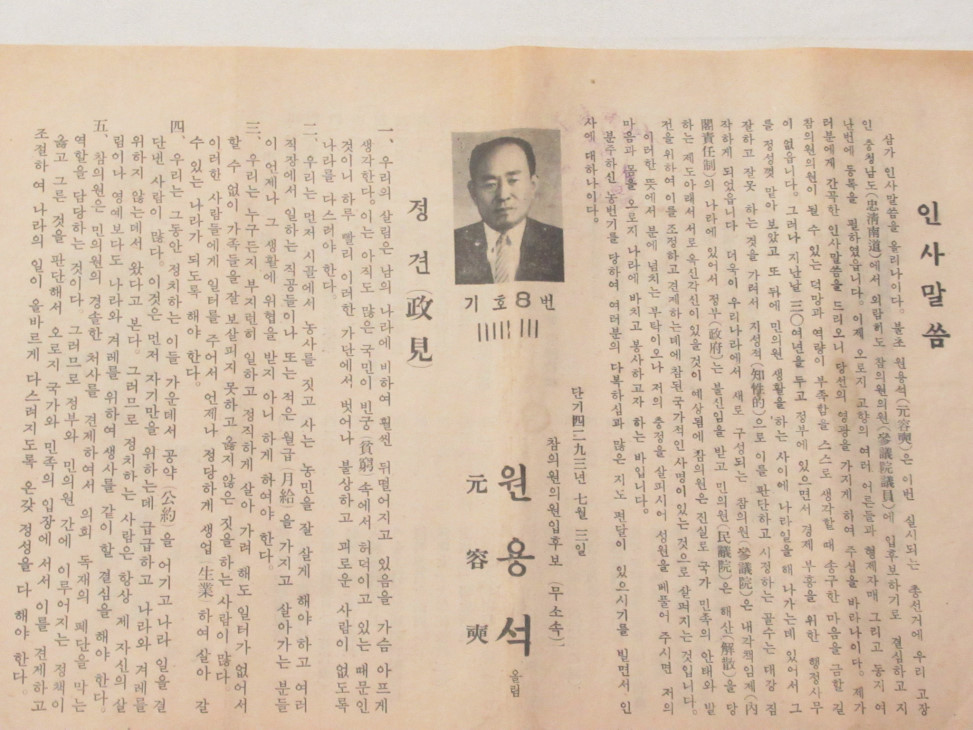 인사말씀
삼가 인사말씀을 올리나이다。 불초 원용석(元容奭)은 이번 실시되는 총선거에 우리 고장
인 충청남도(忠清南道)에서 외람히도 참의원의원(參議院議員)에 입후보하기로 결심하고 지
난번에 등록을 필하였읍니다。 이제 오로지 고향의 여러 어른들과 형제자매 그리고 동지 여
러분에게 간곡한 인사말씀을 드리오니 당선의 영광을 가지게 하여 주심을 바라나이다。 제가
참의원의원이 될 수 있는 덕망과 역량이 부족함을 스스로 생각할 때 송구한 마음을 금할 길
이 없읍니다。 그러나 지난날 三○여년을 두고 정부에 있으면서 경제 부흥을 위한 행정사무
를 정성껏 맡아 보았고 또 뒤에 민의원 생활을 하는 사이에 나라일을 해 나가는데 있어서 그
잘하고 잘못 하는 것을 가려서 지성적(知性的)으로 이를 판단하고 시정하는 골수는 대강 짐
작하게 되었읍니다 더욱이 우리나라에서 새로 구성되는 참의원(參議院)은 내각책임제(內
閣責任制)의 나라에 있어서 정부(政府)는 불신임을 받고 민의원(民議院)은 해산(解散)을 당
하는 제도아래서 서로 옥신각신이 있을 것이 예상됨에 참의원은 진실로 국가 민족의 안태와 발
전을 위하여 이를 조정하고 견제하는데에 참된 국가적인 사명이 있는 것으로 살펴지는 것입니다。
이러한 뜻에서 분에 넘치는 부탁이오나 저의 충정을 살피시어 성원을 베풀어 주시면 저의
마음과 몸을 오로지 나라에 바치고 봉사하고자 하는 바입니다。
분주하신 농번기를 당하여 여러분의 다복하심과 많은 지도 편달이 있으시기를 빌면서 인
사에 대하나이다。
단기四二九三년 七월 三일
참의원의원입후보 (무소속)
원용석 올림
元容奭
기호8번
정견(政見)
一、 우리의 살림은 남의 나라에 비하여 훨씬 뒤떨어지고 있음을 가슴 아프게
생각한다。 이는 아직도 많은 국민이 빈궁(貧窮)속에서 허덕이고 있는 때문인
것이니 하루 빨리 이러한 가난에서 벗어나 불상하고 괴로운 사람이 없도록
나라를 다스려야 한다。
二、 우리는 먼저 시골에서 농사를 짓고 사는 농민을 잘 살게 해야 하고 여러
직장에서 일하는 직공들이나 또는 적은 월급(月給)을 가지고 살아가는 분들
이 언제나 그 생활에 위협을 받지 아니 하게 하여야 한다。
三、 우리는 누구든지 부지런히 일하고 정직하게 살아 가려 해도 일터가 없어서
할 수 없이 가족들을 잘 보살피지 못하고 옳지않은 짓을 하는 사람이 많다
이러한 사람들에게 일터를 주어서 언제나 정당하게 생업(生業)하여 살아 갈
수 있는 나라가 되도록 해야 한다。
四、 우리는 그동안 정치하는 이들 가운데서 공약(公約)을 어기고 나라 일을 결
단낸 사람이 많다。 이것은 먼저 자기만을 위하는데 급급하고 나라와 겨레를
위하지 않는데서 왔다고 본다。 그러므로 정치하는 사람은 항상 제 자신의 살
림이나 영예보다도 나라와 겨레를 위하여 생사를 같이 할 결심을 해야 한다。
五、 참의원은 민의원의 경솔한 처사를 견제하여서 의회 독재의 폐단을 막는
역할을 담당하는 것이다。 그러므로 정부와 민의원 간에 이루어지는 정책이
옳고 그른 것을 판단해서 오로지 국가와 민족의 입장에 서서 이를 견제하고
조절하여 나라의 일이 올바르게 다스려지도록 온갖 정성을 다 해야 한다。